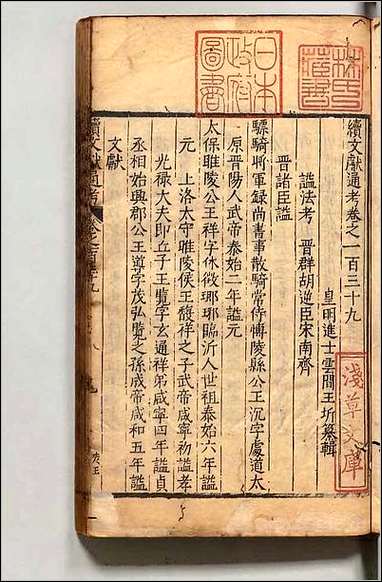 續文獻通考卷之一百三十九
皇明進士雲間王圻纂輯
謚法考 晋群胡逆臣宋南齊
晋諸臣謚
驃騎將軍録尚書事散騎常侍博陵縣公王沉字處道太
原晋陽人武帝泰始二年謚元
太保睢陵公王祥字休徵琅琊臨沂人世祖泰始六年謚
元 上洛太守睢陵侯王馥祥之子武帝咸寧初謚孝
光禄大夫即丘子王覽字玄通祥弟咸寧四年謚貞
丞相始興郡公王導字茂弘覽之孫成帝咸和五年謚
文獻
林氏藏書
日本政府圖書
淺草文庫
續文獻通考